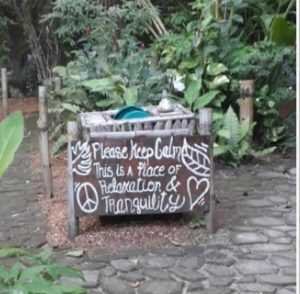 Please Keep Calm
This is a Place of
Relaxation &
Tranquility